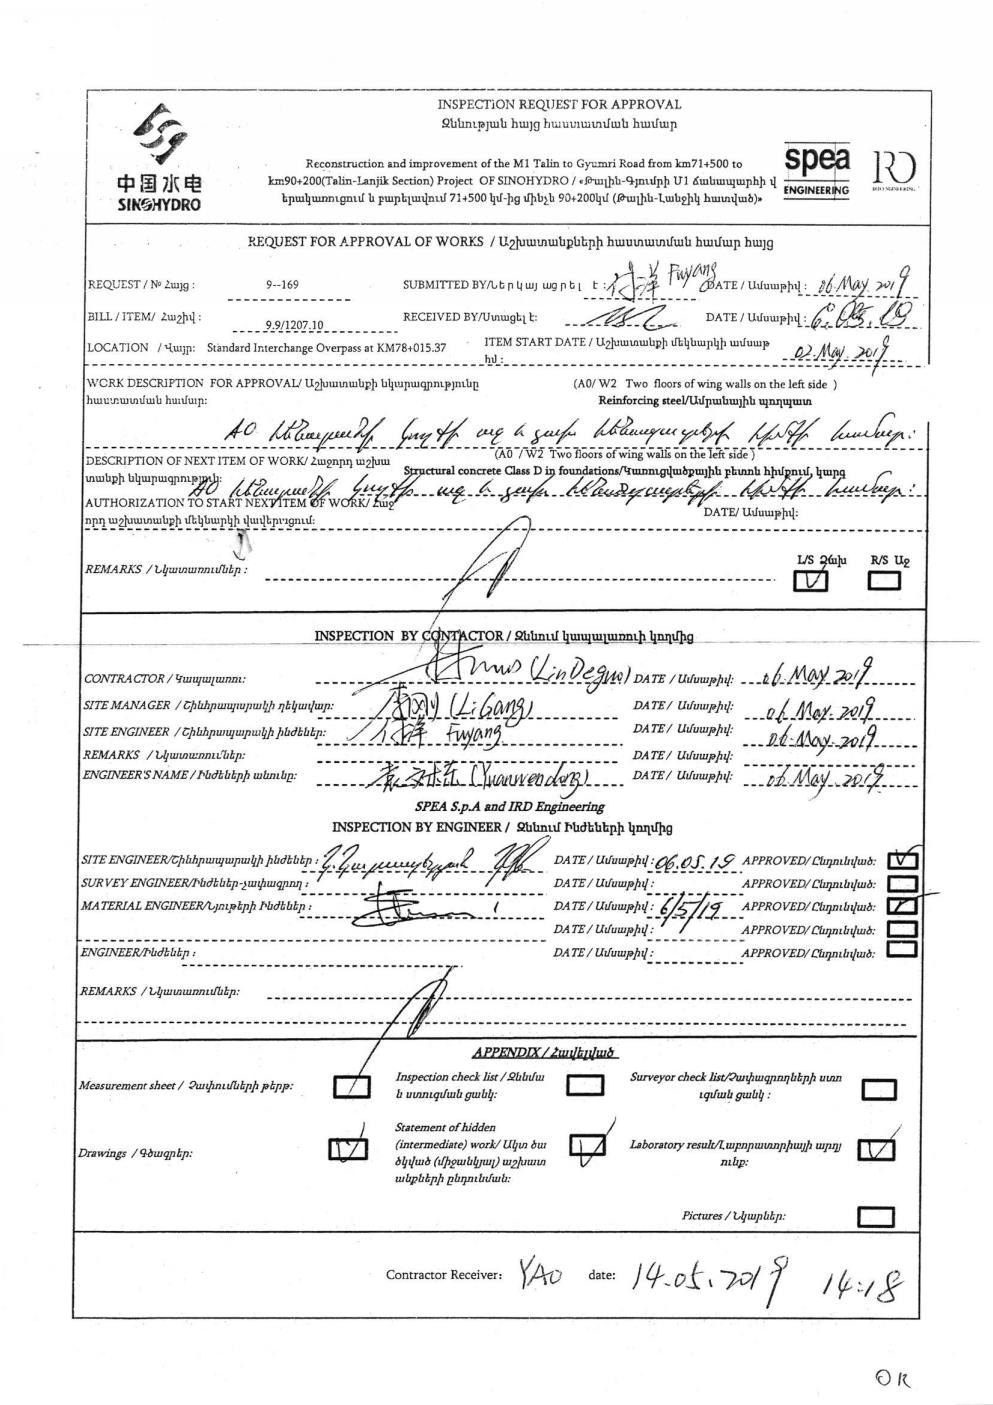 INSPECTION REQUEST FOR APPROVAL
Զննության հայց հաստատման համար
中国水电
SINOHYDRO
Reconstruction and improvement of the M1 Talin to Gyumri Road from km71+500 to
km90+200(Talin-Lanjik Section) Project OF SINOHYDRO / «Թալին-Գյումրի Մ1 ճանապարհի վ
երակառուցում և բարելավում 71+500 կմ-ից մինչև 90+200կմ (Թալին-Լանջիկ հատված)»
spea
ENGINEERING
REQUEST FOR APPROVAL OF WORKS / Աշխատանքների հաստատման համար հայց
REQUEST / № Հայց : 9--169 SUBMITTED BY/Ներկայացրել է : 付洋 Fuyang DATE / Ամսաթիվ: 06.May.2019
BILL / ITEM/ Հաշիվ : 9.9/1207.10 RECEIVED BY/Ստացել է: DATE / Ամսաթիվ: 6.05.19
LOCATION / Վայր: Standard Interchange Overpass at KM78+015.37 ITEM START DATE / Աշխատանքի մեկնարկի ամսաթ
իվ : 02.May.2019
WORK DESCRIPTION FOR APPROVAL/ Աշխատանքի նկարագրությունը (A0/ W2 Two floors of wing walls on the left side )
հաստատման համար: Reinforcing steel/Ամրանային պողպատ
(A0 / W2 Two floors of wing walls on the left side )
DESCRIPTION OF NEXT ITEM OF WORK/ Հաջորդ աշխա
տանքի նկարագրություն: Structural concrete Class D in foundations/Կառուցվածքային բետոն հիմքում, կարգ
AUTHORIZATION TO START NEXT ITEM OF WORK/ Հաջ
որդ աշխատանքի մեկնարկի վավերացում: DATE/ Ամսաթիվ:
L/S Ձախ R/S Աջ
REMARKS / Նկատառումներ :
INSPECTION BY CONTACTOR / Զննում կապալառուի կողմից
CONTRACTOR / Կապալառու: (Lin Deguo) DATE / Ամսաթիվ: 06.May.2019
SITE MANAGER / Շինհրապարակի ղեկավար: 李刚 (Li Gang) DATE / Ամսաթիվ: 06.May.2019
SITE ENGINEER / Շինհրապարակի ինժեներ: 付洋 Fuyang DATE / Ամսաթիվ: 06.May.2019
REMARKS / Նկատառումներ:
ENGINEER'S NAME / Ինժեների անունը: (Yuanwendong) DATE / Ամսաթիվ: 06.May.2019
SPEA S.p.A and IRD Engineering
INSPECTION BY ENGINEER / Զննում Ինժեների կողմից
SITE ENGINEER/Շինհրապարակի ինժեներ : DATE / Ամսաթիվ: 06.05.19 APPROVED/ Ընդունված:
SURVEY ENGINEER/Ինժեներ-չափագրող : DATE / Ամսաթիվ : APPROVED/ Ընդունված:
MATERIAL ENGINEER/Նյութերի Ինժեներ : DATE / Ամսաթիվ: 6/5/19 APPROVED/ Ընդունված:
DATE / Ամսաթիվ : APPROVED/ Ընդունված:
ENGINEER/Ինժեներ : DATE / Ամսաթիվ : APPROVED/ Ընդունված:
REMARKS / Նկատառումներ:
APPENDIX / Հավելված
Measurement sheet / Չափումների թերթ: Inspection check list / Զննմա
ն ստուգման ցանկ: Surveyor check list/Չափագրողների ստո
ւգման ցանկ :
Drawings / Գծագրեր: Statement of hidden
(intermediate) work/ Ակտ ծա
ծկված (միջանկյալ) աշխատ
անքների ընդունման: Laboratory result/Լաբորատորիայի արդյ
ունք:
Pictures / Նկարներ:
Contractor Receiver: YAO date: 14.05.2019 14:18
OR